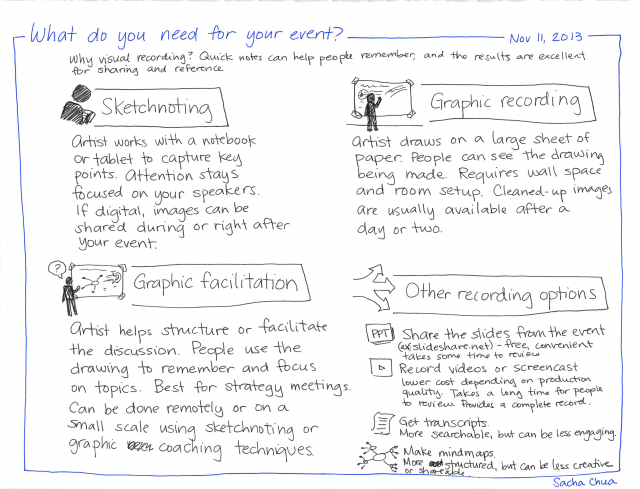 What do you need for your event?
Nov 11, 2013
Why visual recording? Quick notes can help people remember, and the results are excellent
for sharing and reference.
Sketchnoting
Artist works with a notebook
or tablet to capture key
points. Attention stays
focused on your speakers.
If digital, images can be
shared during or right after
your event.
Graphic recording
Artist draws on a large sheet of
paper. People can see the drawing
being made. Requires wall space
and room setup. Cleaned-up images
are usually available after a
day or two.
?
Graphic facilitation
Artist helps structure or facilitate
the discussion. People use the
drawing to remember and focus
on topics. Best for strategy meetings.
Can be done remotely or on a
small scale using sketchnoting or
graphic coaching techniques.
Other recording options
PPT
Share the slides from the event
(ex: slideshare.net) - free, convenient
takes some time to review
Record videos or screencast
lower cost depending on production
quality. Takes a long time for people
to review. Provides a complete record.
Get transcripts.
More searchable, but can be less engaging.
Make mindmaps.
More structured, but can be less creative
or shareable
Sacha Chua